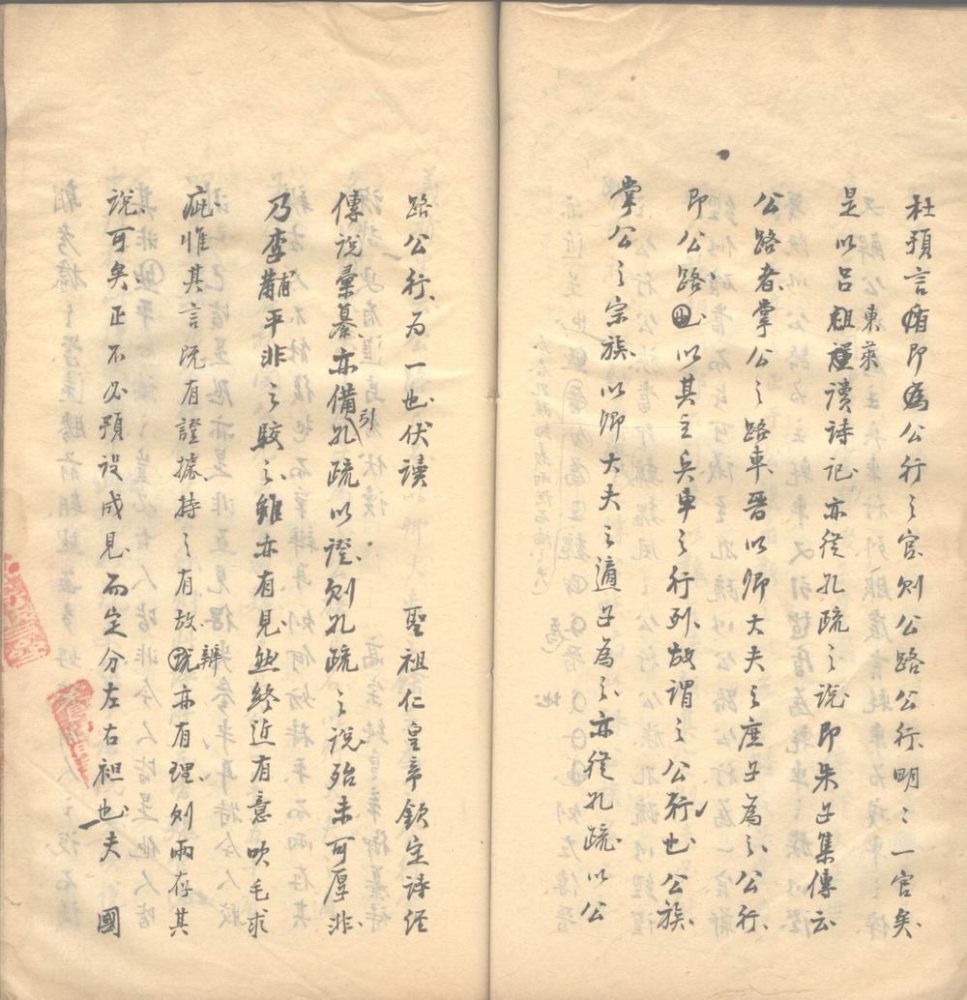 杜預言即為公行之官則公路公行明之一官矣
是以呂東萊讀詩記亦從孔疏之說即朱子集傳云
公路者掌公之路車晉以卿大夫之庶子為之公行
即公路也以其主兵車之行列故謂之公行也公族
掌公之宗族以卿大夫之適子為之亦從孔疏以公
路公行為一也伏讀 聖祖仁皇帝欽定詩經
傳說彙纂亦備引孔疏以證則孔疏之說殆未可厚非
乃李黼平非之駁之雖亦有見然終近有意吹毛求
疵惟其言既有證據持之有故辨亦有理則兩存其
說可矣正不必預設成見而定分左右袒也夫 國